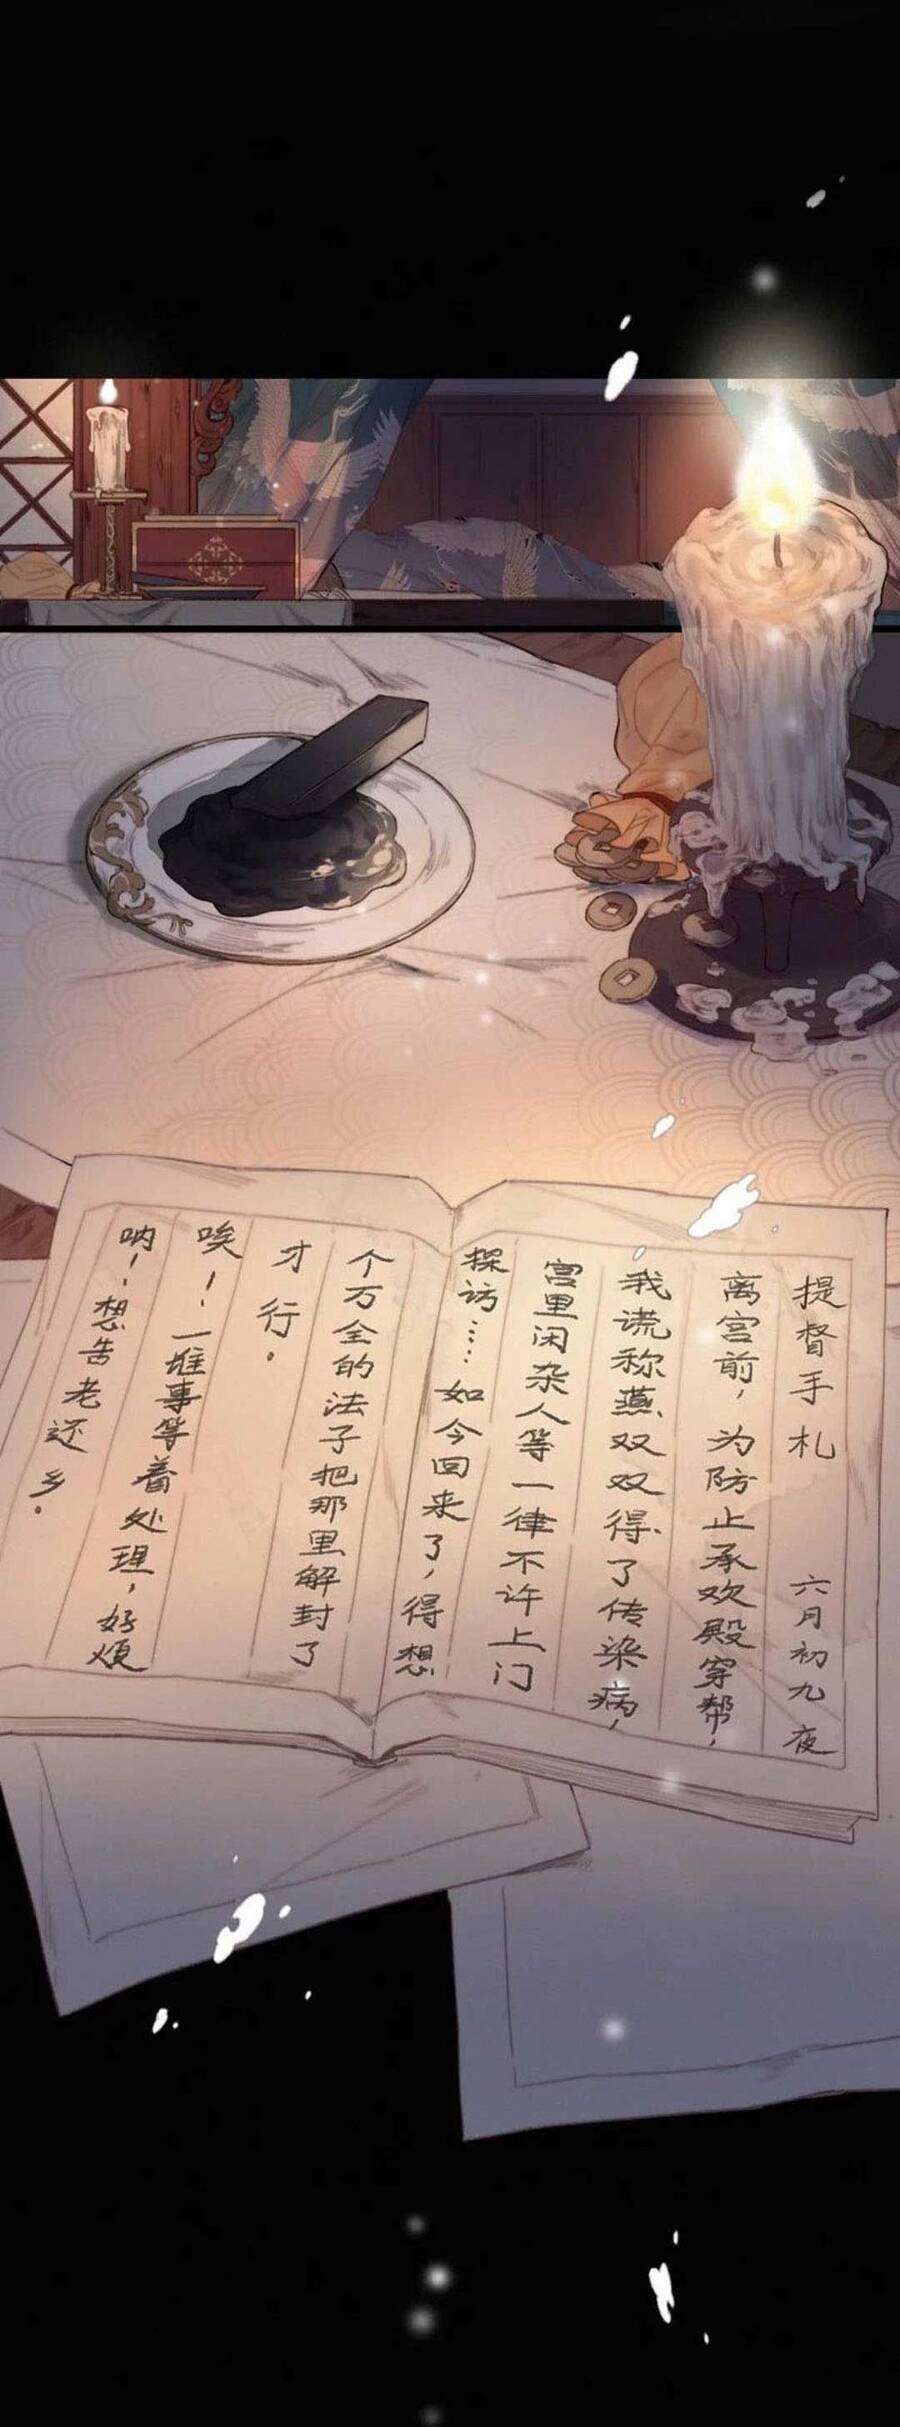 提督手札 六月初九夜
离宫前，为防止承欢殿穿帮，
我谎称燕双双得了传染病，
宫里闲杂人等一律不许上门
探访……如今回来了，得想
个万全的法子把那里解封了
才行。
唉！一堆事等着处理，好烦
呐！想告老还乡。